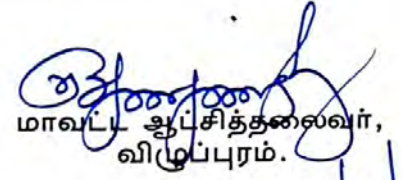 மாவட்ட ஆட்சித்தலைவர்,
விழுப்புரம்.